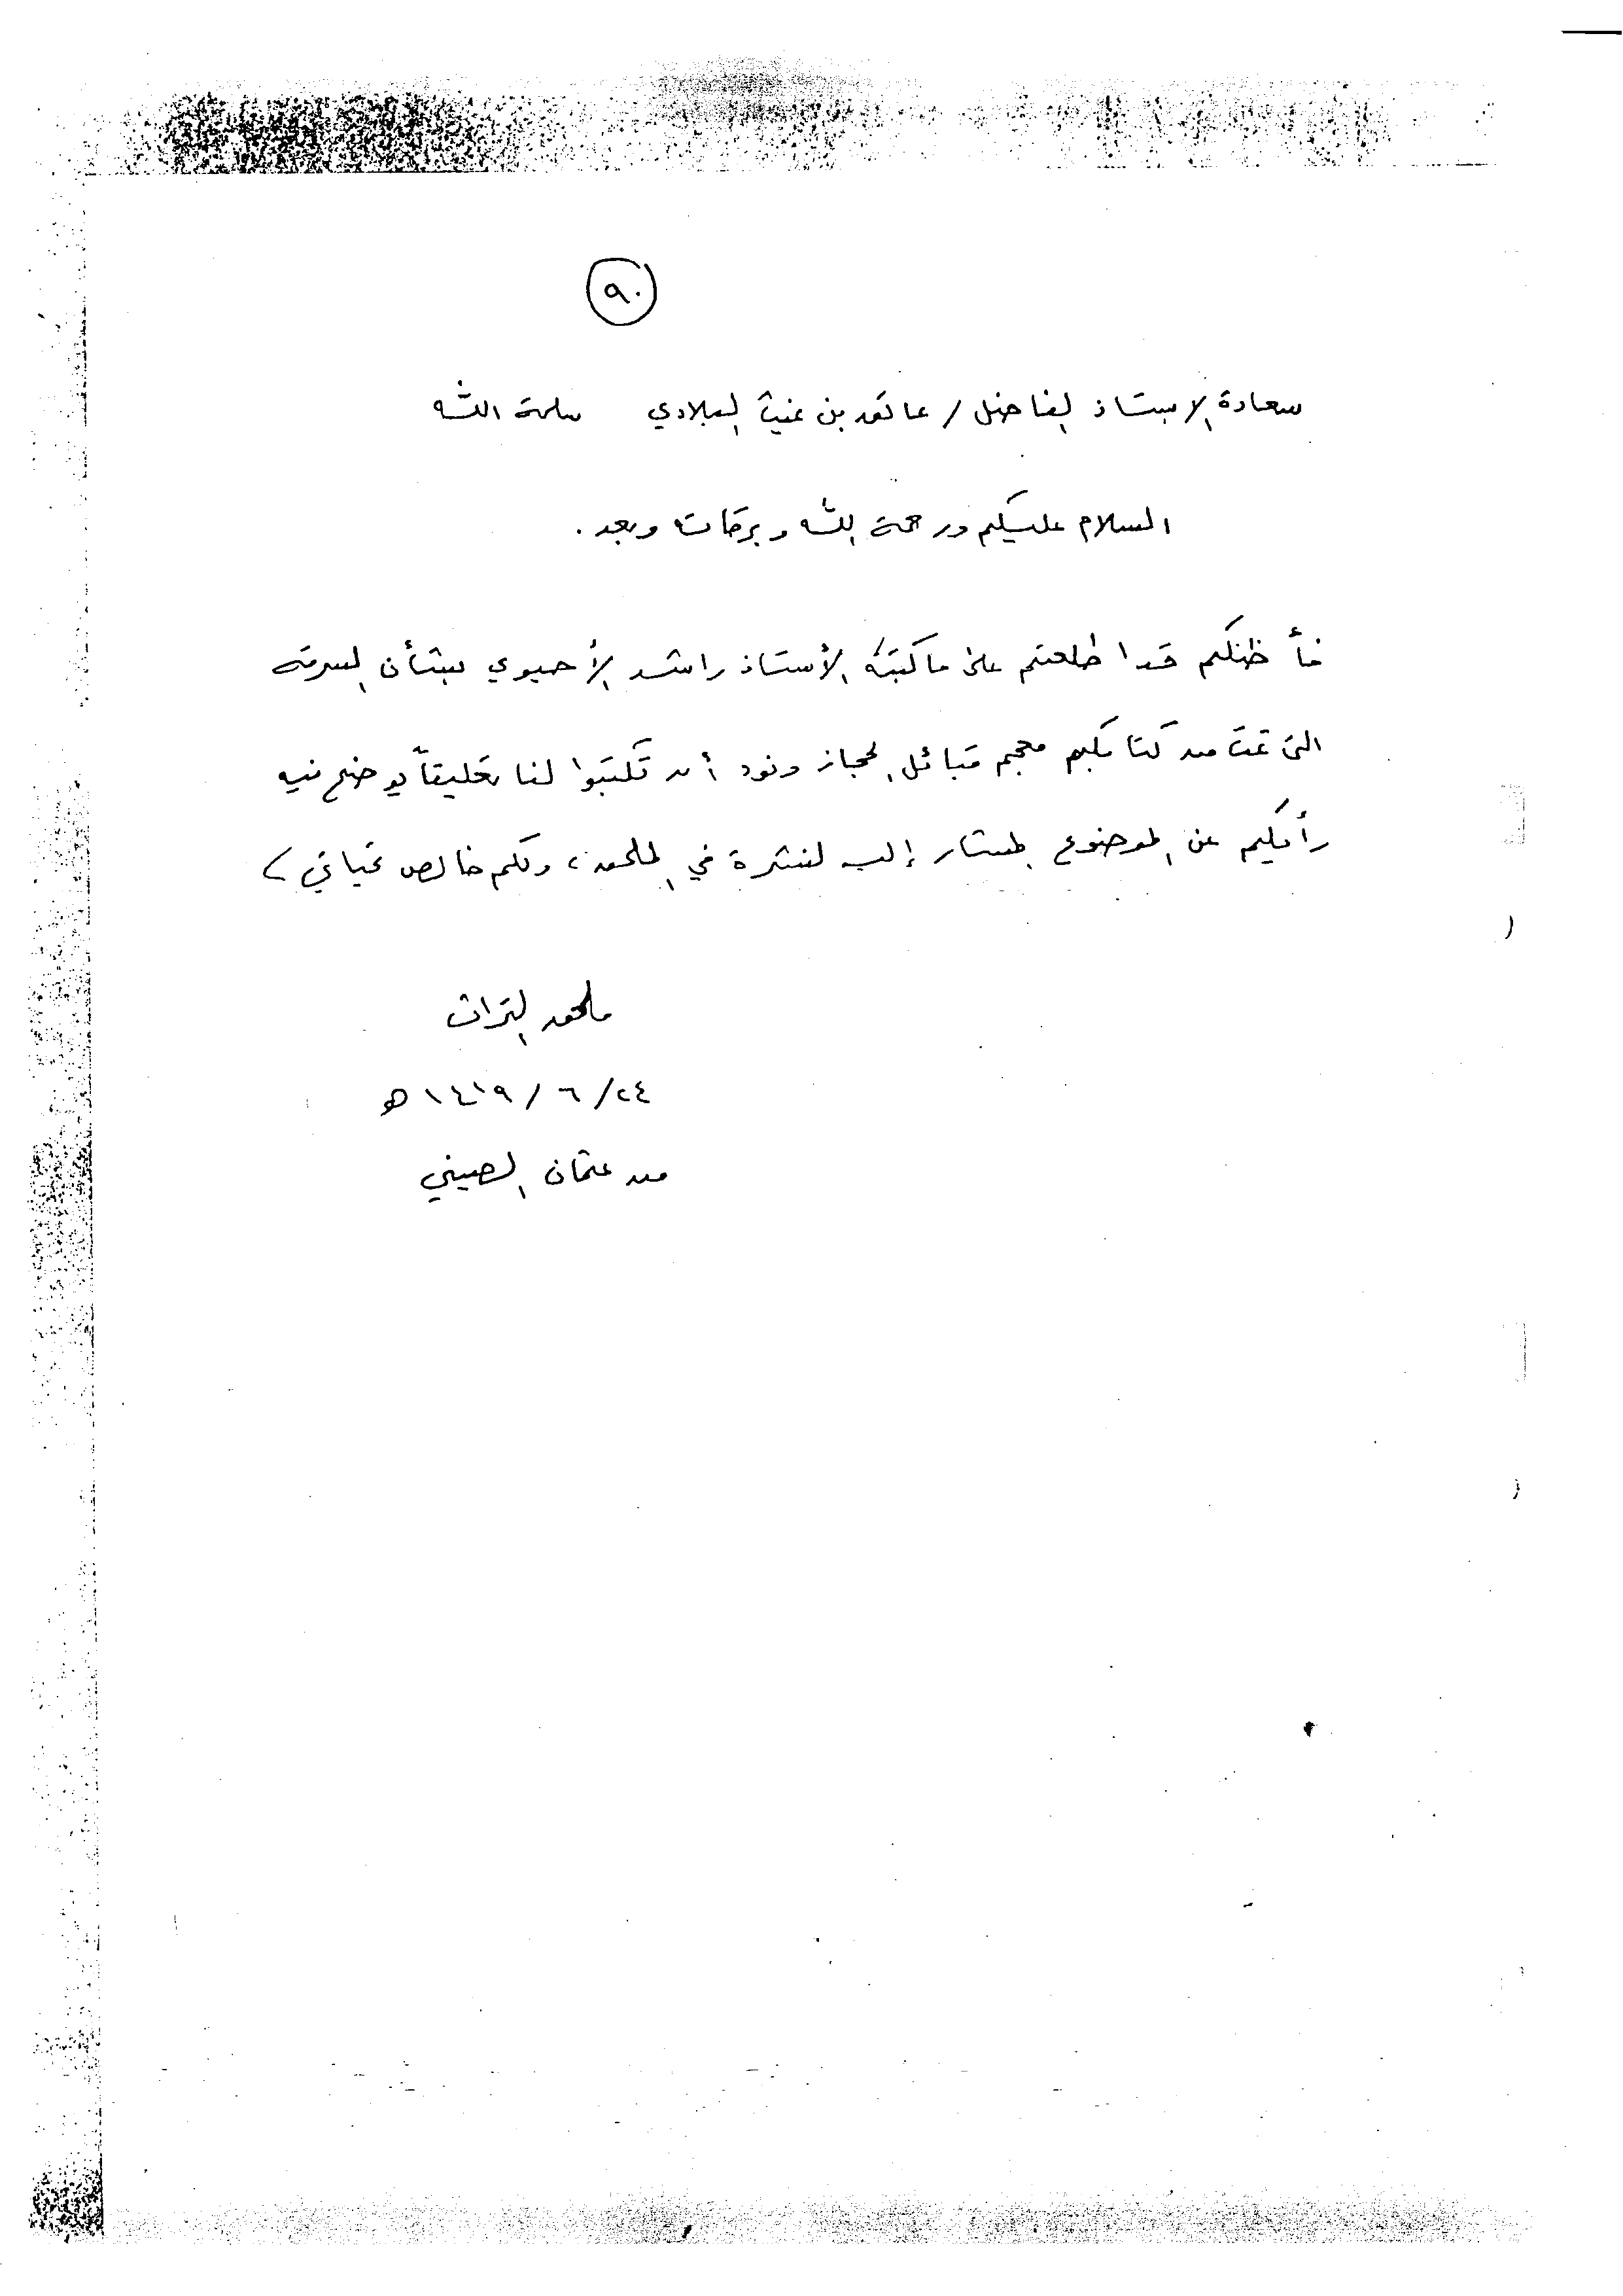 ٩٠
سعادة الاستاذ الفاضل / عاتق بن غيث البلادي سلمه الله
السلام عليكم ورحمة الله وبركاته وبعد .
فأظنكم قد اطلعتم على ما كتبه الأستاذ راشد الأحيوي بشأن السرقة
التي تمت من كتابكم معجم قبائل الحجاز ونود أن تكتبوا لنا تعليقاً يوضح فيه
رأيكم عن الموضوع المشار إليه لنشره في الملحق، ولكم خالص تحياتي
ملحق التراث
٢٤/ ٦ / ١٤١٩ هـ
من عثمان الصيني